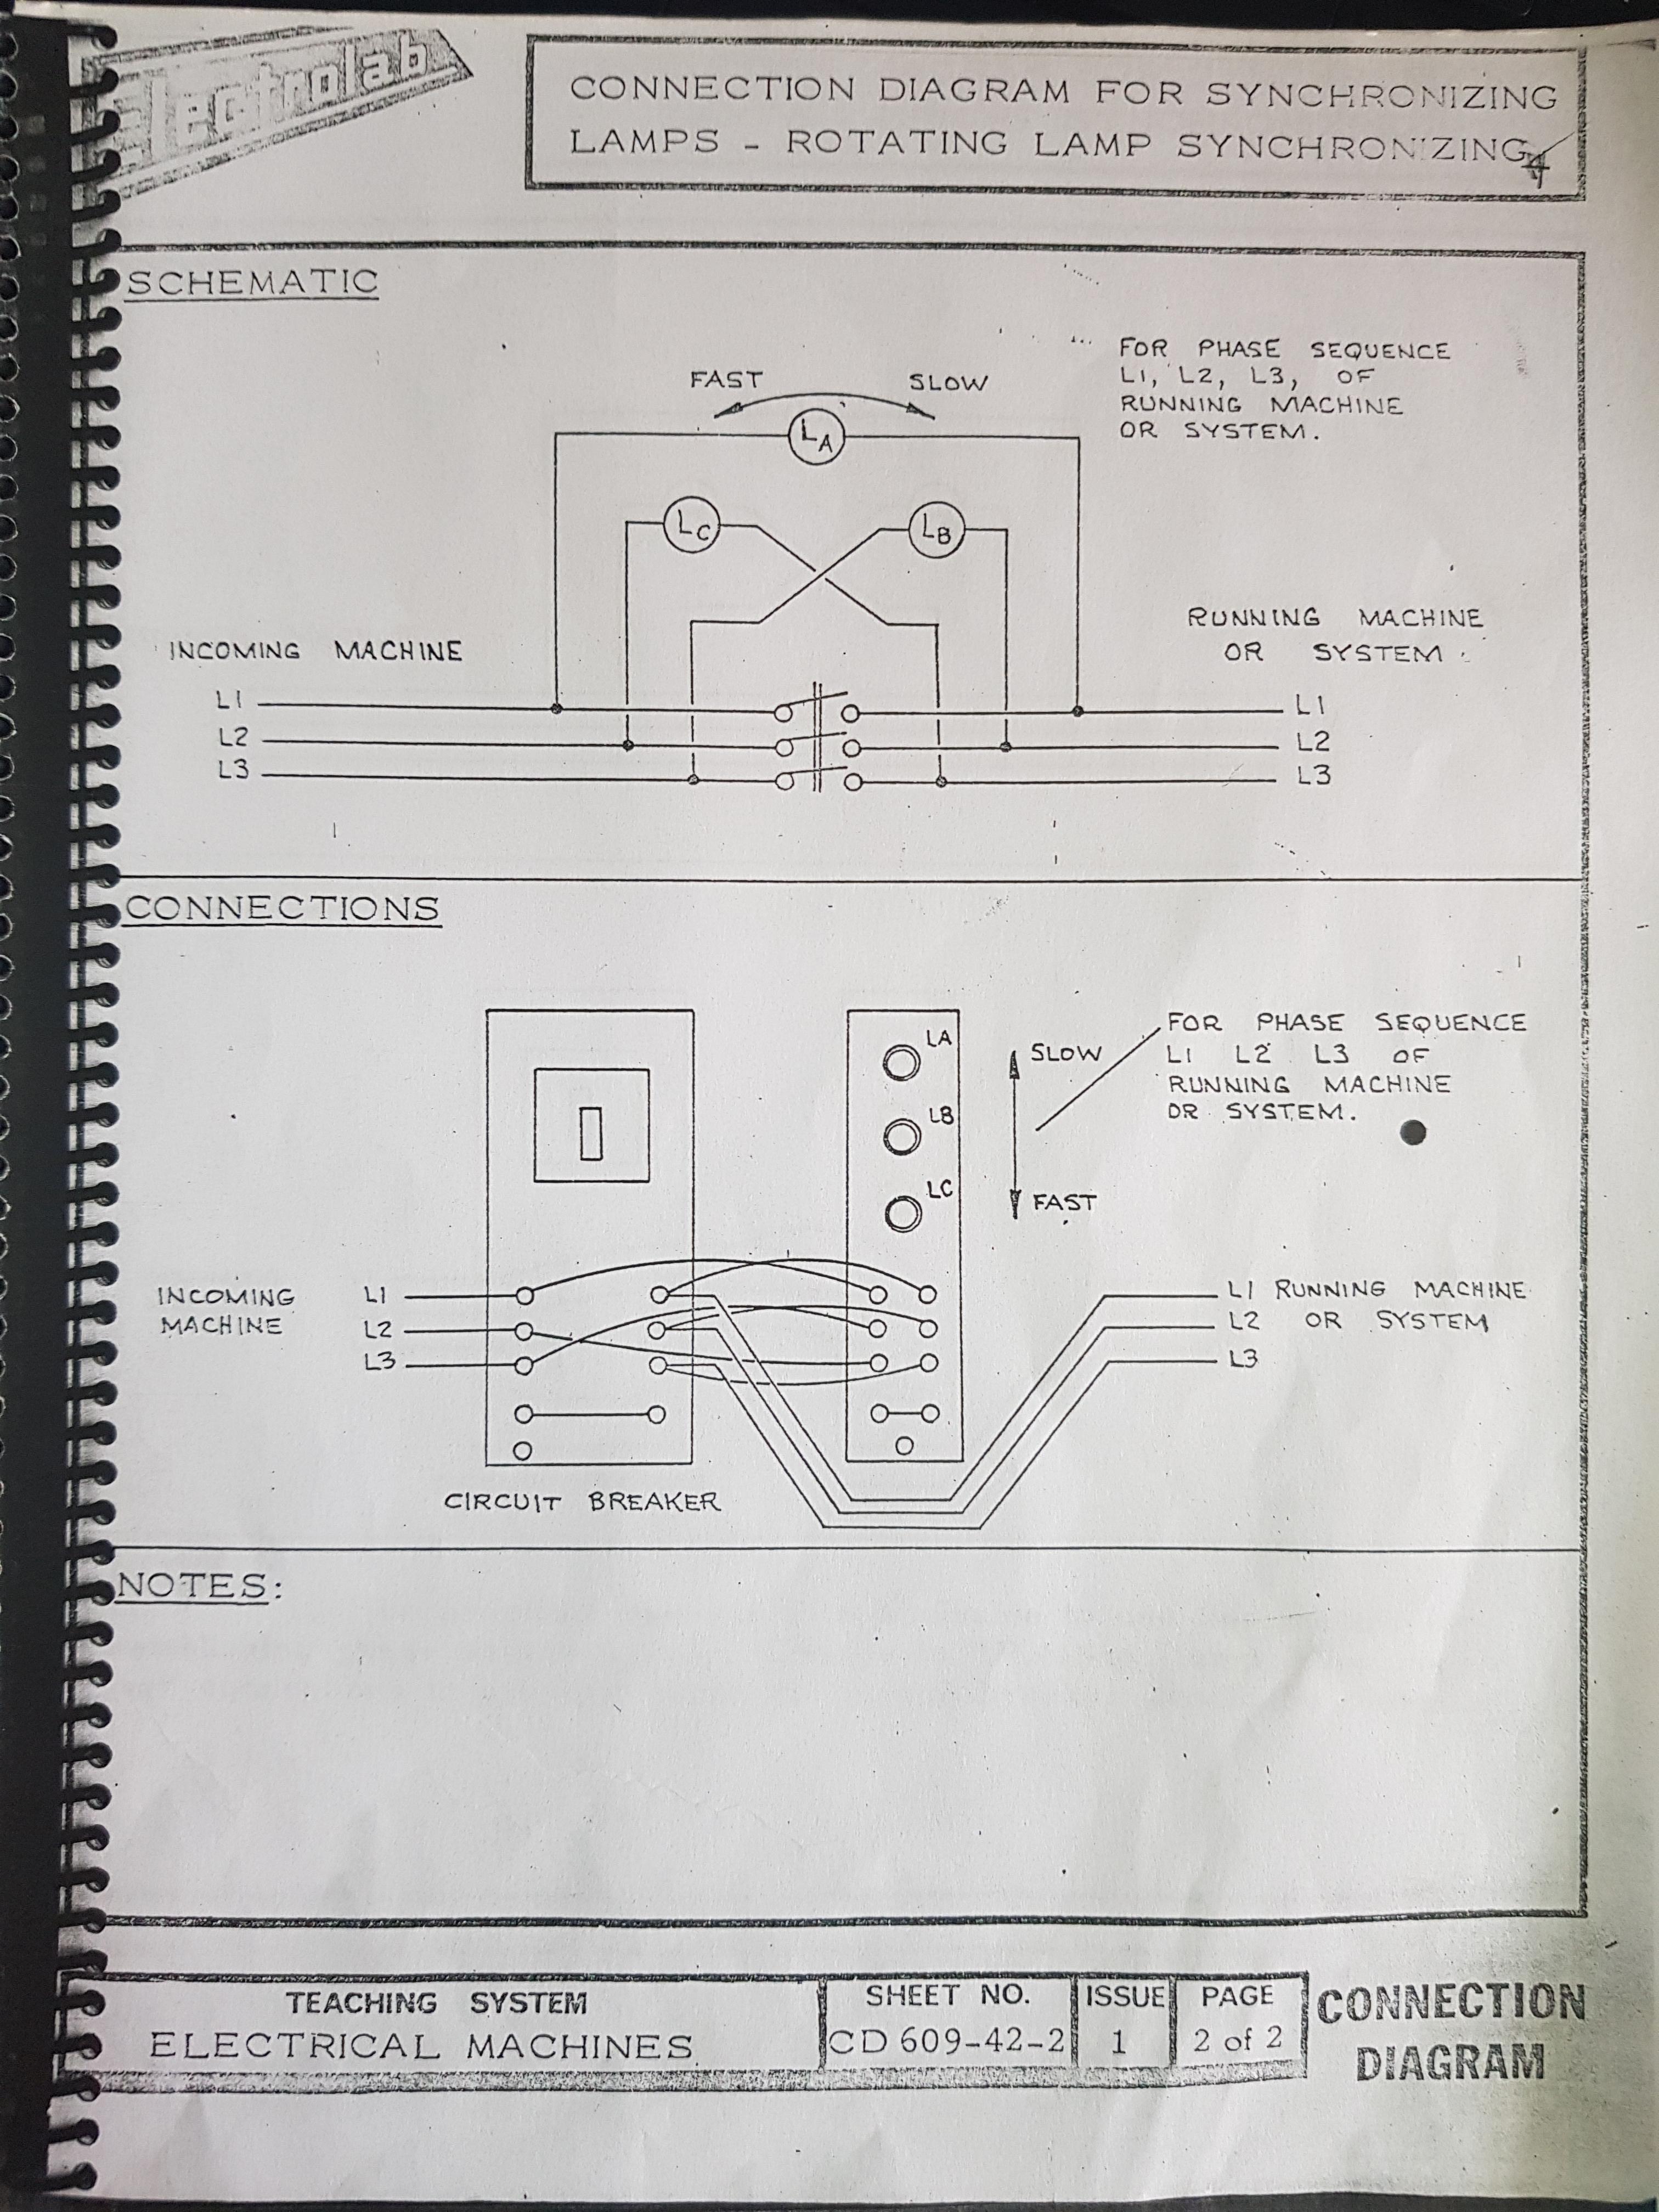 Electrolab
CONNECTION DIAGRAM FOR SYNCHRONIZING
LAMPS - ROTATING LAMP SYNCHRONIZING
4
SCHEMATIC
FOR PHASE SEQUENCE
L1, L2, L3, OF
RUNNING MACHINE
OR SYSTEM.
FAST
SLOW
LA
LC
LB
INCOMING MACHINE
RUNNING MACHINE
OR SYSTEM
L1
L2
L3
L1
L2
L3
CONNECTIONS
LA
LB
LC
SLOW
FAST
FOR PHASE SEQUENCE
L1 L2 L3 OF
RUNNING MACHINE
OR SYSTEM.
INCOMING
MACHINE
L1
L2
L3
L1 RUNNING MACHINE
L2 OR SYSTEM
L3
CIRCUIT BREAKER
NOTES:
TEACHING SYSTEM
ELECTRICAL MACHINES
SHEET NO.
CD 609-42-2
ISSUE
1
PAGE
2 of 2
CONNECTION
DIAGRAM